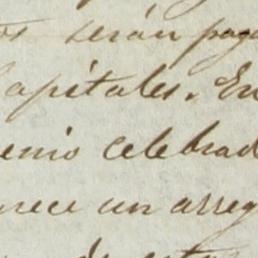 os serán pag
Capitales. En
enio celebrad
rece un arreg